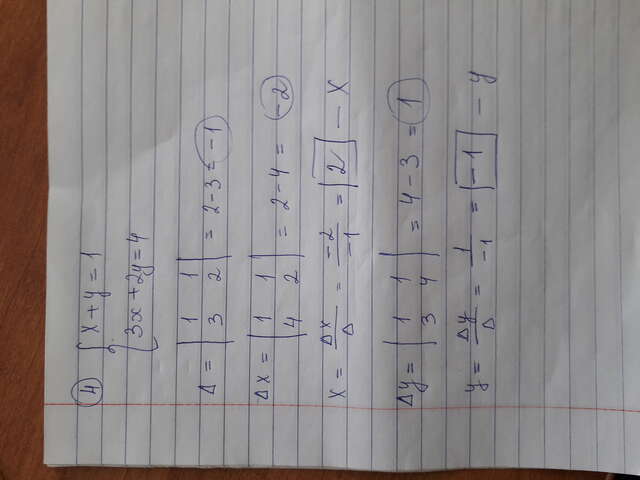 4 { x + y = 1
3x + 2y = 4
Δ = | 1 1 | = 2 - 3 = -1
| 3 2 |
Δx = | 1 1 | = 2 - 4 = -2
| 4 2 |
x = Δx/Δ = -2/-1 = 2 - x
Δy = | 1 1 | = 4 - 3 = 1
| 3 4 |
y = Δy/Δ = 1/-1 = -1 - y